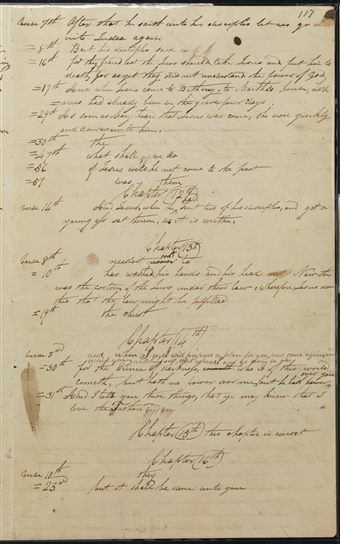 117
verse 7th After that he said unto his disciples let us go
into Judea again
= 8th But his disciples said
= 16th for they feared lest the Jews should take Jesus and put him to
death, for as yet they did not understand the power of God
= 17th And when Jesus came to Bethany, to Martha's house,
had already been in the grave four days,
= 29th As soon as Mary heard that Jesus was come, she rose quickly
and came unto him.
= 30th the
= 47th what shall we do
= 56 of Jesus will he not come to the feast
= 57 was them
Chapter 12th
verse 14th And Jesus, when he had sent two of his disciples, and got a
young ass sat thereon, as it is written,
Chapter 13th
verse 8th needed not
= 10th has washed his hands and his head Now this
was the custom of the Jews under their law; wherefore Jesus
did this that the law might be fulfilled
= 19th the christ
Chapter 14th
verse 3d and when I go I will prepare a place for you, and come again
= 30th for the prince of darkness, who is of this world
cometh, but hath no power over me, but he hath power over you
= 31st And I tell you these things, that ye may know that I
love the Father
Chapter (15th) this chapter is correct
Chapter (16th)
verse 10th they
= 23d but it shall be done unto you